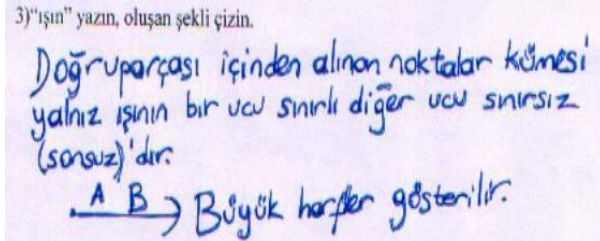 3)“ışın” yazın, oluşan şekli çizin.
Doğruparçası içinden alınan noktalar kümesi
yalnız ışının bir ucu sınırlı diğer ucu sınırsız
(sonsuz)'dır.
A B Büyük harfler gösterilir.